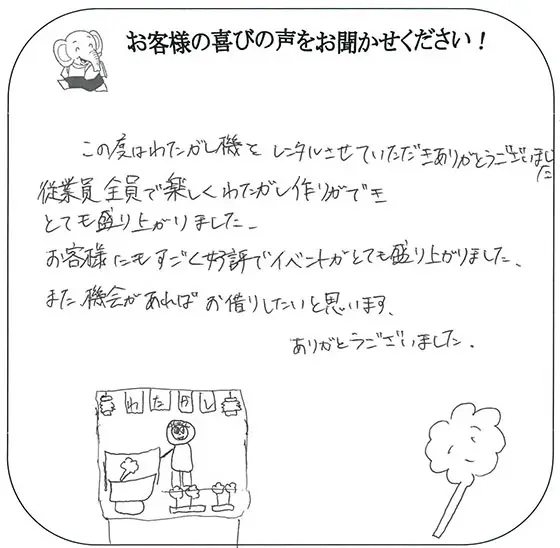 お客様の喜びの声をお聞かせください！
この度はわたがし機をレンタルさせていただきありがとうございました
従業員全員で楽しくわたがし作りができ
とても盛り上がりました。
お客様にもすごく好評でイベントがとても盛り上がりました。
また機会があればお借りしたいと思います。
ありがとうございました。
わたがし